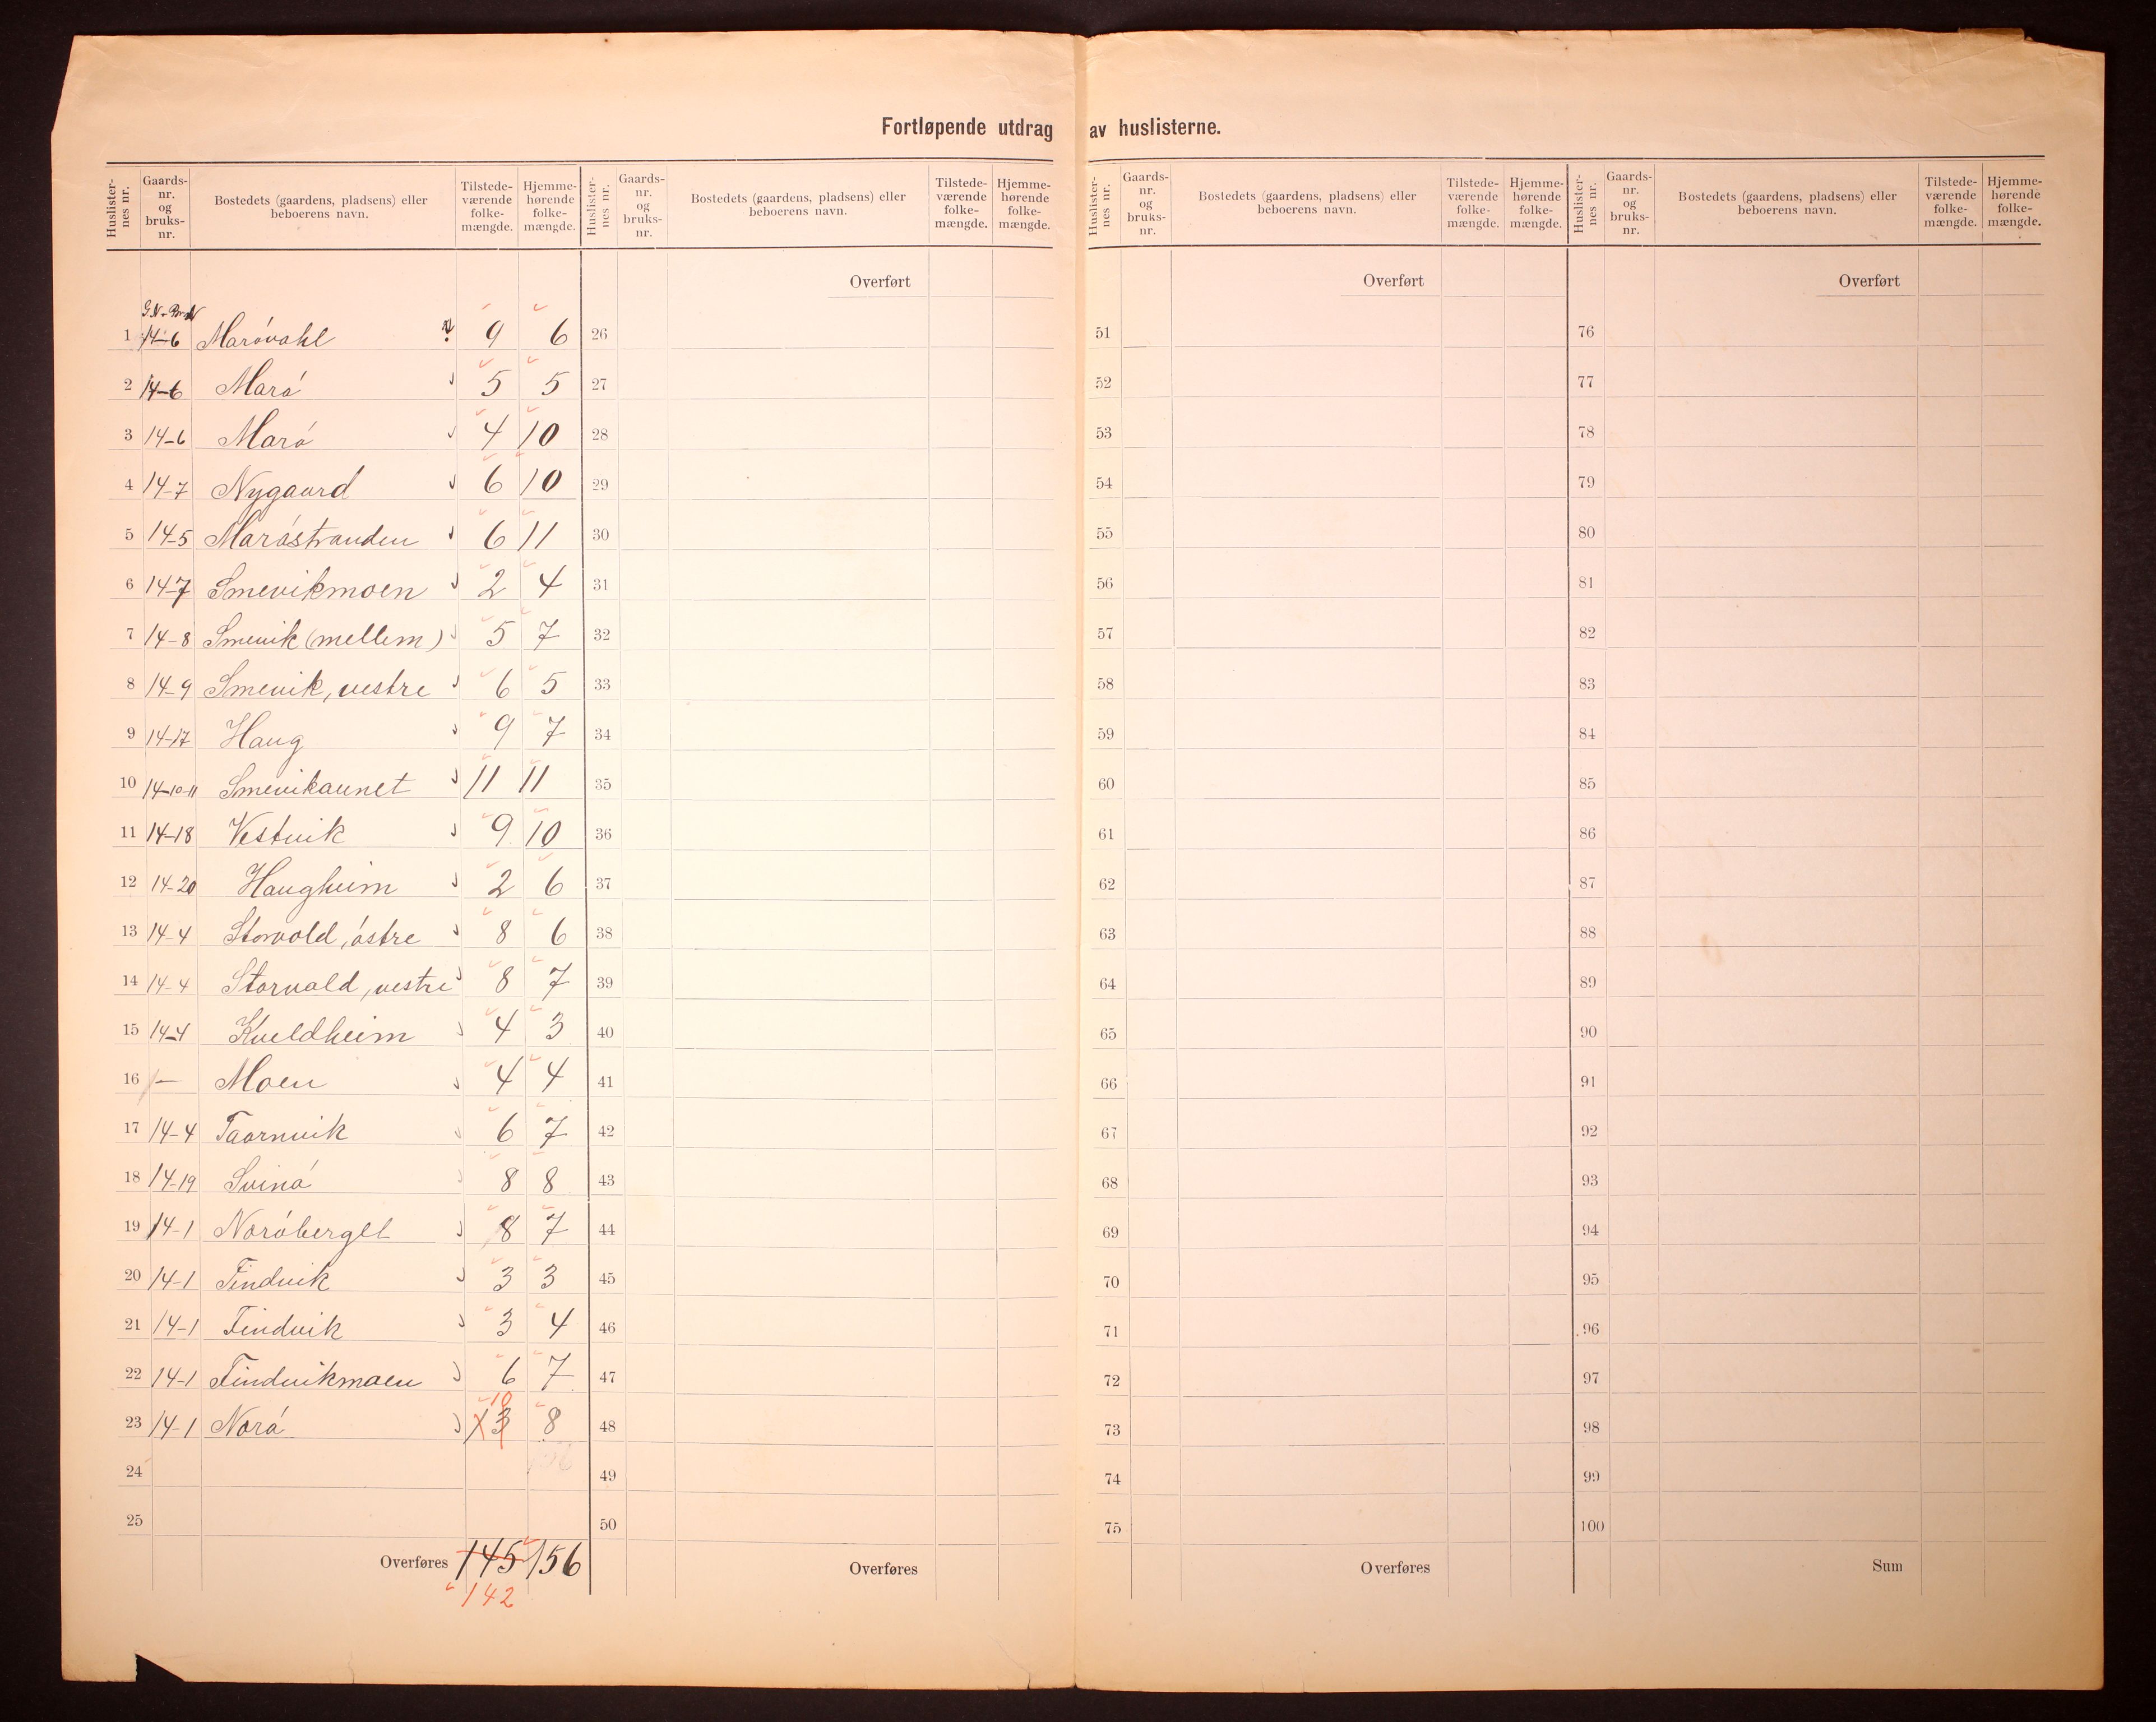 Fortløpende utdrag av huslisterne.
Huslisternes nr. Gaards-nr. og bruks-nr. Bostedets (gaardens, pladsens) eller beboerens navn. Tilstede-værende folke-mængde. Hjemme-hørende folke-mængde.
Huslisternes nr. Gaards-nr. og bruks-nr. Bostedets (gaardens, pladsens) eller beboerens navn. Tilstede-værende folke-mængde. Hjemme-hørende folke-mængde.
Huslisternes nr. Gaards-nr. og bruks-nr. Bostedets (gaardens, pladsens) eller beboerens navn. Tilstede-værende folke-mængde. Hjemme-hørende folke-mængde.
Huslisternes nr. Gaards-nr. og bruks-nr. Bostedets (gaardens, pladsens) eller beboerens navn. Tilstede-værende folke-mængde. Hjemme-hørende folke-mængde.
Overført Overført Overført
1 14-6 Maróvahl 9 6 26 51 76
2 14-6 Maró 5 5 27 52 77
3 14-6 Maró 4 10 28 53 78
4 14-7 Nygaard 6 10 29 54 79
5 14-5 Maróstranden 6 11 30 55 80
6 14-7 Smevikmoen 2 4 31 56 81
7 14-8 Smevik (mellem) 5 7 32 57 82
8 14-9 Smevik, vestre 6 5 33 58 83
9 14-17 Haug 9 7 34 59 84
10 14-10-11 Smevikaunet 11 11 35 60 85
11 14-18 Vestvik 9 10 36 61 86
12 14-20 Haugheim 2 6 37 62 87
13 14-4 Storvold, óstre 8 6 38 63 88
14 14-4 Storvold, vestre 8 7 39 64 89
15 14-4 Kveldheim 4 3 40 65 90
16 - Moen 4 4 41 66 91
17 14-4 Taarnvik 6 7 42 67 92
18 14-19 Svinó 8 8 43 68 93
19 14-1 Noróberget 8 7 44 69 94
20 14-1 Findvik 3 3 45 70 95
21 14-1 Findvik 3 4 46 71 96
22 14-1 Findvikmoen 6 7 47 72 97
10
23 14-1 Noró 13 8 48 73 98
24 49 74 99
25 50 75 100
Overføres 145 156 Overføres Overføres Sum
142